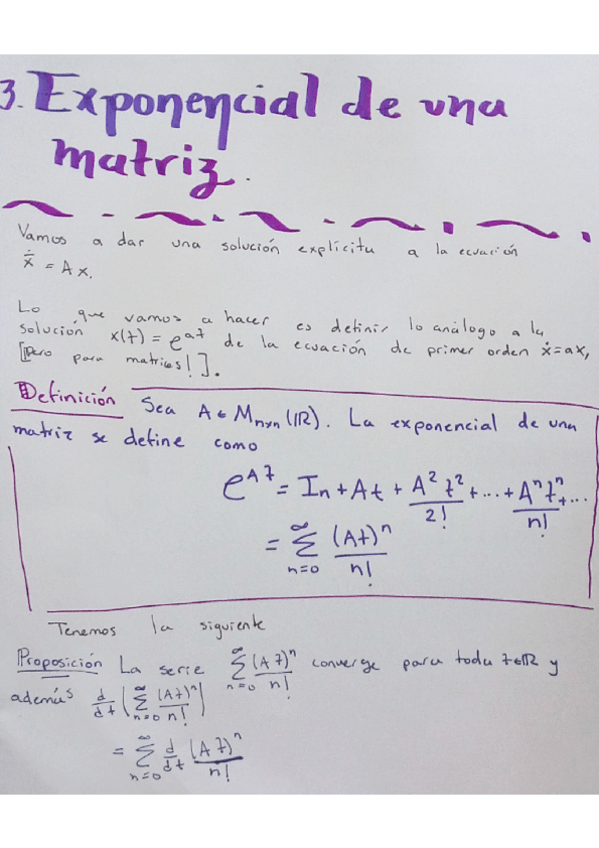 3. Exponencial de una
matriz.
Vamos a dar una solución explícita a la ecuación
ẋ = Ax.
Lo que vamos a hacer es definir lo análogo a la
solución x(t) = e^{at} de la ecuación de primer orden ẋ=ax,
[¡pero para matrices!].
Definición Sea A ∈ M_{n×n}(ℝ). La exponencial de una
matriz se define como
e^{At} = I_n + At + \frac{A^2 t^2}{2!} + ... + \frac{A^n t^n}{n!} + ...
= \sum_{n=0}^{∞} \frac{(At)^n}{n!}
Tenemos la siguiente
Proposición La serie \sum_{n=0}^{∞} \frac{(At)^n}{n!} converge para todo t∈ℝ y
además \frac{d}{dt} \left( \sum_{n=0}^{∞} \frac{(At)^n}{n!} \right)
= \sum_{n=0}^{∞} \frac{d}{dt} \frac{(At)^n}{n!}